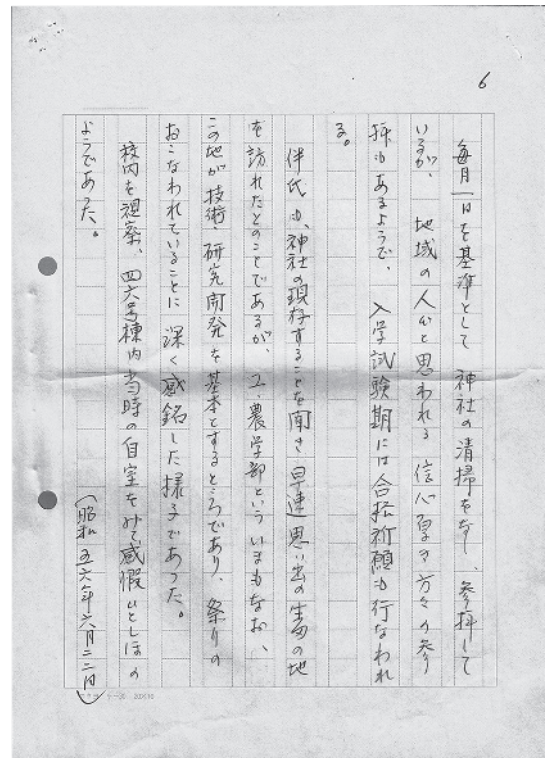 6
毎月一日を基準として 神社の清掃をなし、参拝して
いるが、 地域の人々と思われる 信心厚き方々の参
拝もあるようで、 入学試験期には合格祈願も行なわれ
る。
伴氏も、神社の現存することを聞き 早速 思い出の生田の地
を訪れたとのことであるが、工・農学部といういまもなお、
この地が技術・研究開発を基本とするところであり、祭りの
おこなわれていることに 深く感銘した様子であった。
校内を視察、四六号棟内 当時の自室をみて感慨ひとしほの
ようであった。
(昭和五六年六月二二日)